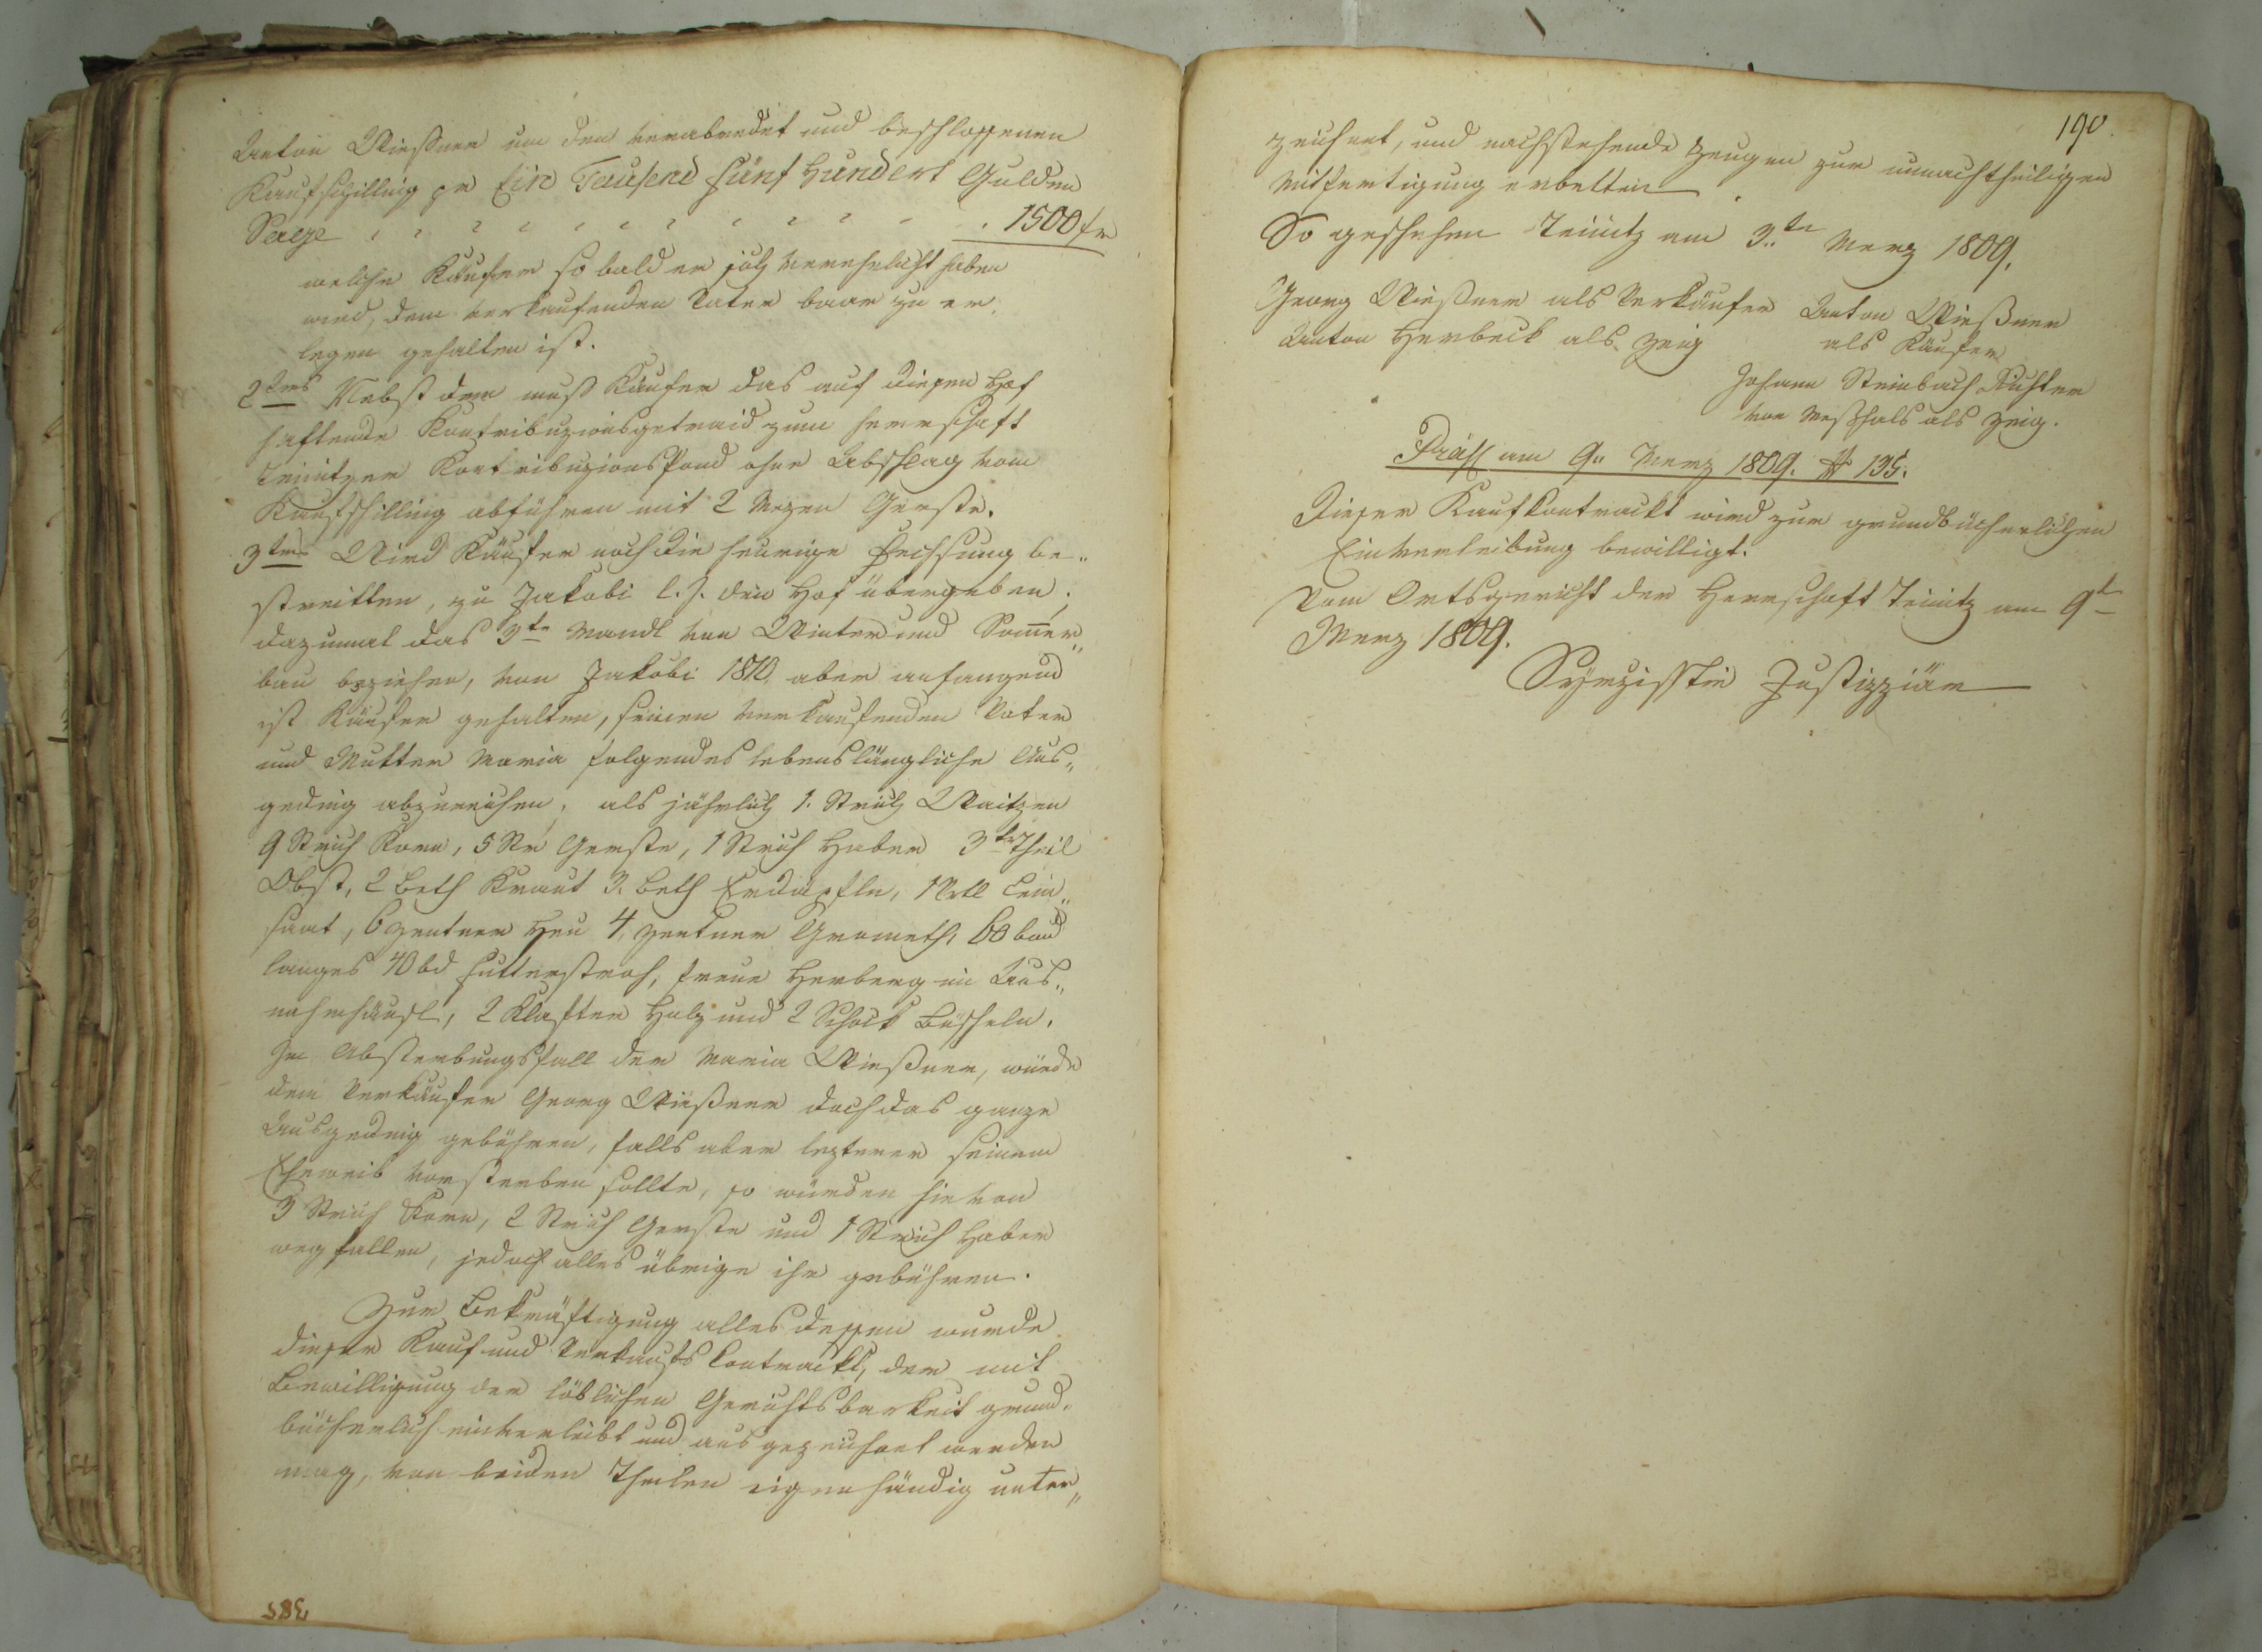 Anton Wießner um den verabredet und beschlossenen
Kaufschilling pr Ein Tausend fünf Hundert Gulden
Sage . . . . . . . . . . . . 1500 fr
welche Käufer so bald er sich verehelicht haben
wird, dem verkaufenden Vater baar zu er„
legen gehalten ist.
2tens Nebst dem muß Käufer das auf diesen Hof
haftende Kontribuzionsgetraid zum herrschaft
Teinitzer Kontribuzionsfond ohne Abschlag vom
Kaufschilling abführen mit 2 Mezen Gerste.
3tens Wird Käufer noch die heurige Fechsung be„
streitten, zu Jakobi l. J. den Hof übergeben,
dazumal das 3te Mandl von Winter und Sommer„
bau beziehen, von Jakobi 1810 aber anfangend
ist Käufer gehalten, seinen verkaufenden Vater
und Mutter Maria folgendes lebenslängliche Aus„
geding abzureichen, als jährlich 1. Strich Waitzen
9 Strich Korn, 5 Str Gerste, 1 Strich Haber 3te Theil
Obst, 2 Beth Kraut 3. Beth Erdäpfeln, 1 Vrtl Lein„
saat, 6 Zentner Heu 4, Zentner Grometh, 60 bund
langes 40 bd Futterstroh, freue Herberg im Aus„
nahmhäusl, 2 Klafter Holz und 2 Schock Büscheln.
Im Absterbungsfall der Maria Wießner, würde
dem Verkäufer Georg Wießner doch das ganze
Ausgeding gebühren, falls aber lezterer seinem
Eheweib vorsterben sollte, so würden hievon
3 Strich Korn, 2 Strich Gerste und 1 Strich Haber
wegfallen, jedoch alles übrige ihr gebühren.
Zur Bekräftigung alles dessen wurde
dieser Kauf und Verkaufs Contrackt, der mit
Bewilligung der löblichen Gerichtsbarkeit grund„
bücherlich einverleibt und ausgezeichnet werden
mag, von beiden Theilen eigenhändig unter„
385
190.
zeichnet, und nachstehende Zeugen zur unnachtheiligen
Mitfertigung erbetten.
So geschehen Teinitz am 3.te Merz 1809.
Georg Wießner als Verkäufer Anton Wießner
Anton Herbeck als Zeug als Käufer
Johann Steinbach Richter
von Meßhals als Zeig.
Präss am 9„ Merz 1809. # 135.
Dieser Kaufkontrackt wird zur grundbücherlichen
Einverleibung bewilligt.
Vom Ortsgericht der Herrschaft Teinitz am 9te
Merz 1809.
Justizziär